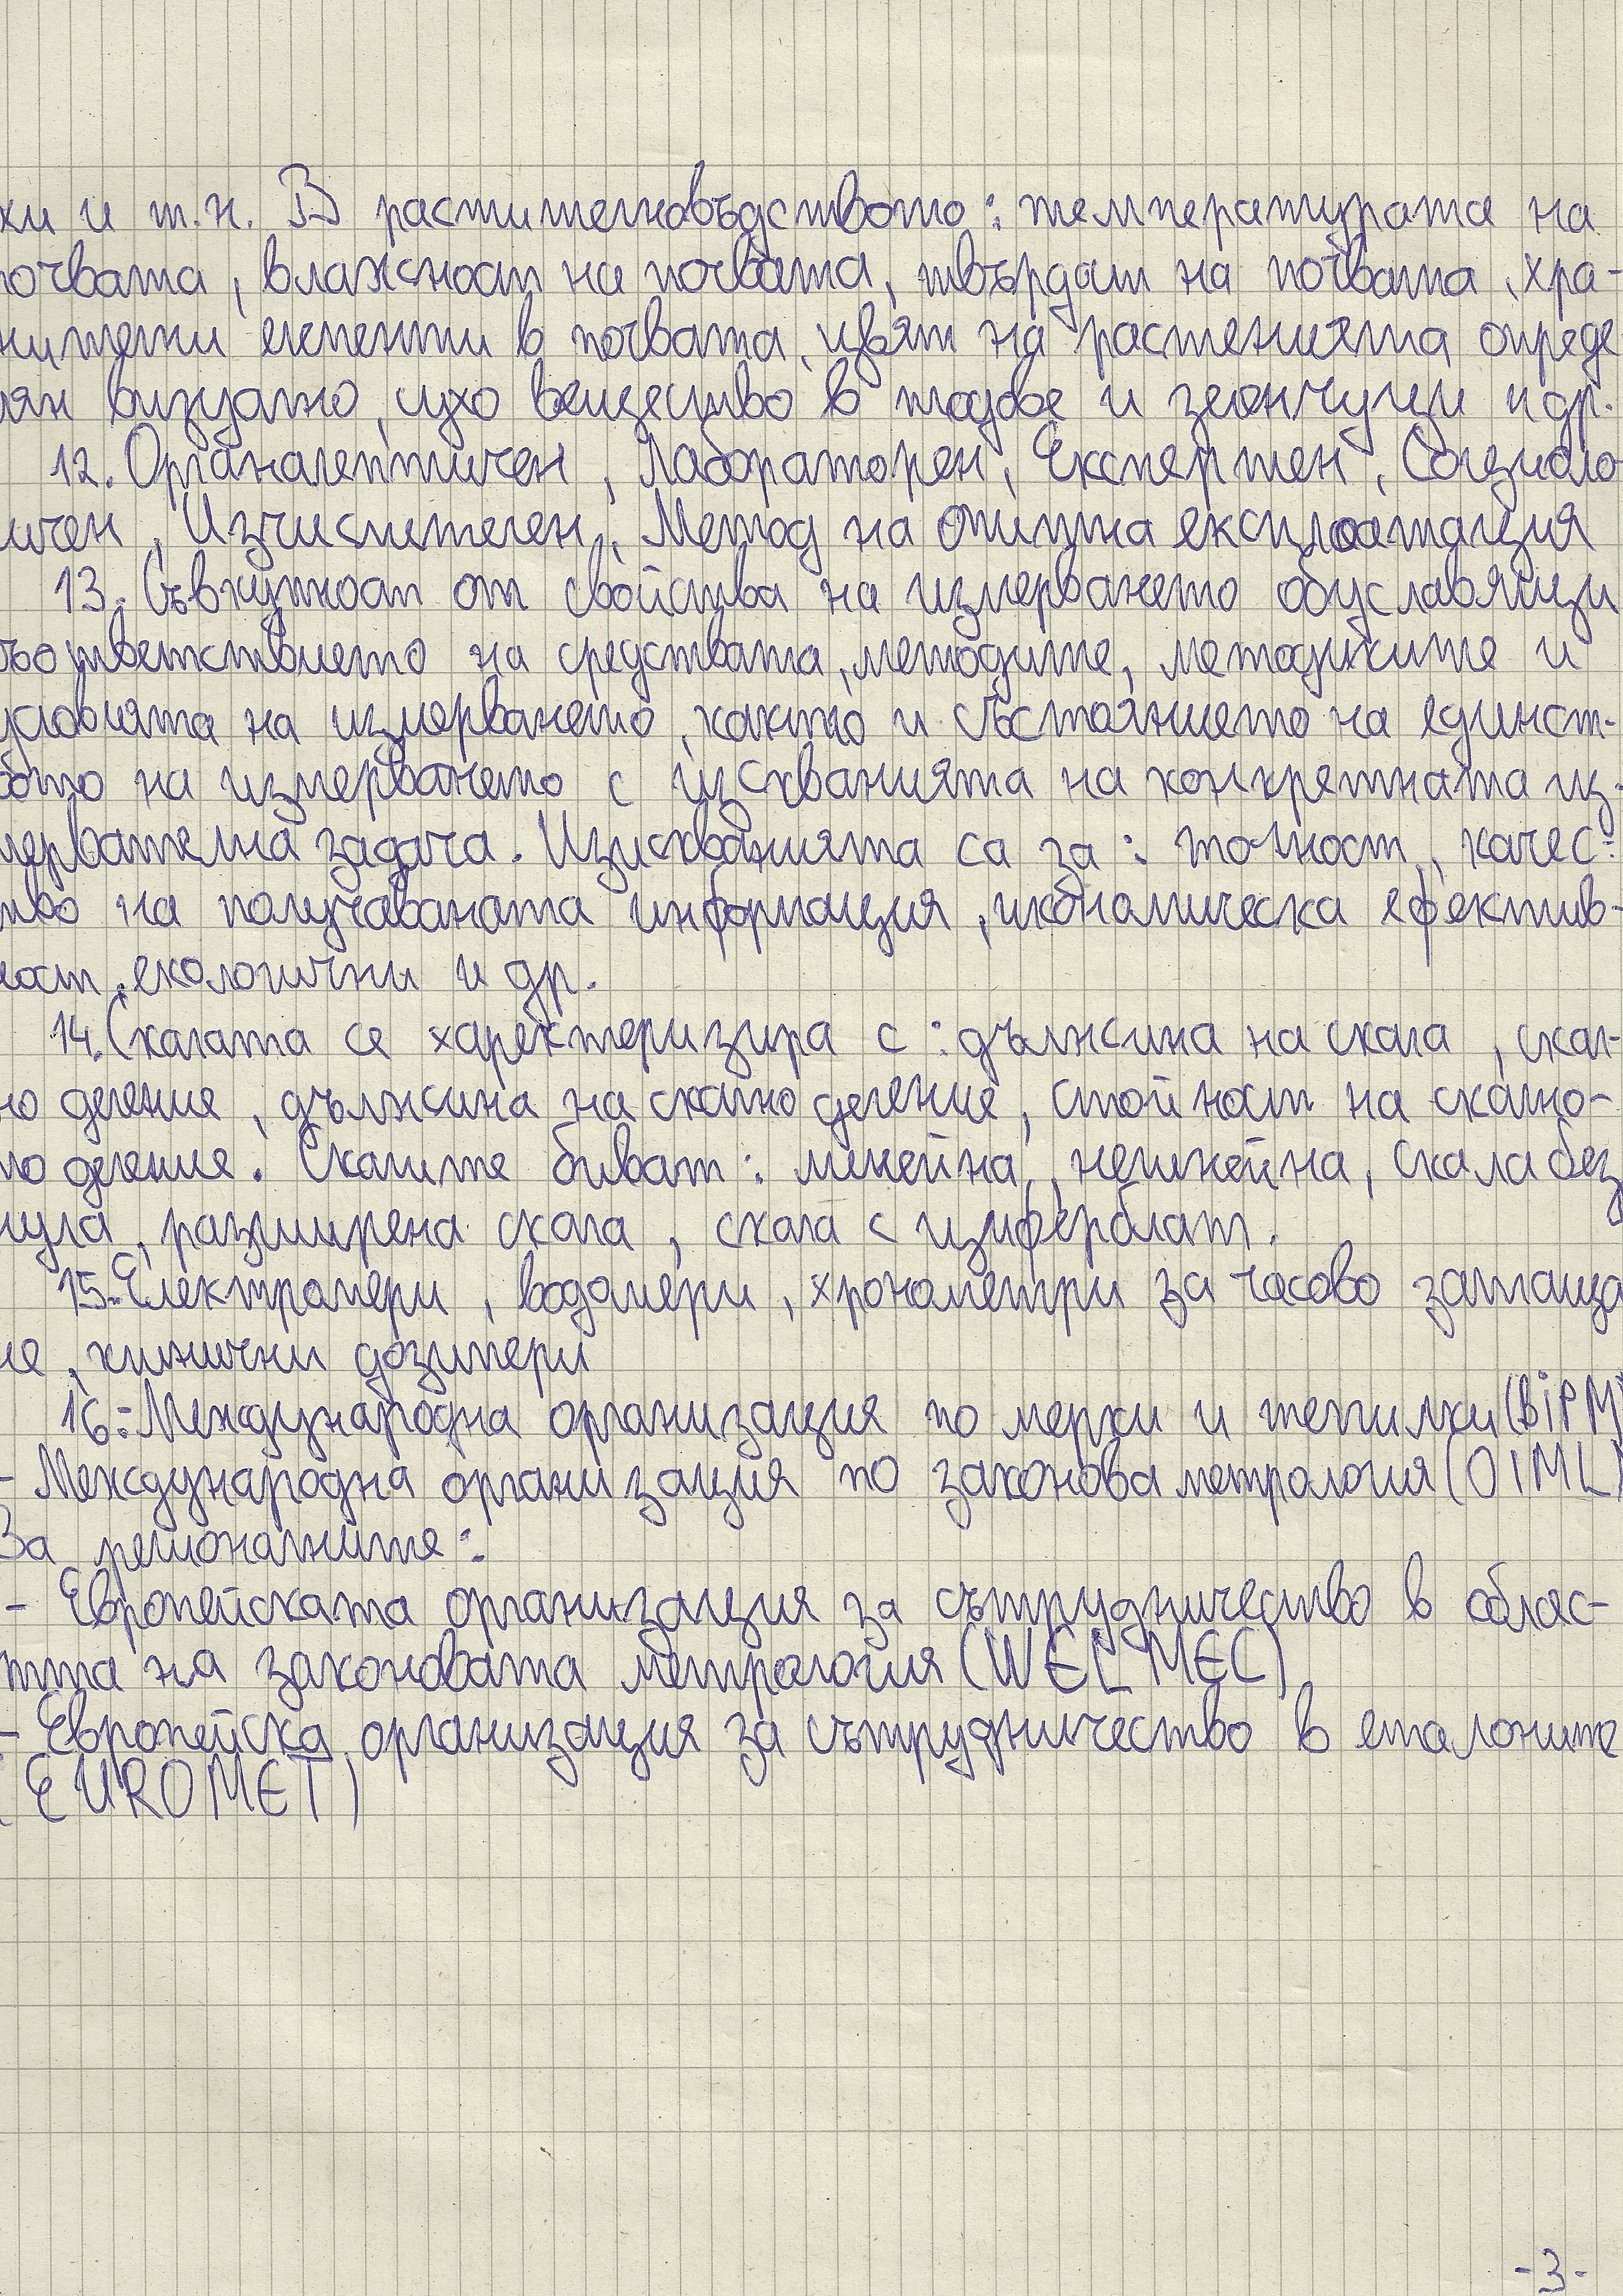 хи и т.н. В растителновъдството: температурата на
почвата, влажност на почвата, твърдост на почвата, хра-
нителни елементи в почвата, цвят на растенията опреде
лян визуално, сухо вещество в плодове и зеленчуци и др.
12. Органалептичен, Лабораторен, Експертен, Социоло
ичен, Изчислителен, Метод на опитна експлоатация
13. Съвкупност от свойства на измерването обуславящи
съответствието на средствата, методите, методиките и
условията на измерването, както и състоянието на единст-
вото на измерването с изискванията на конкретната из-
мервателна задача. Изискванията са за: точност, качес-
тво на получаваната информация, икономическа ефектив-
ност, екологични и др.
14. Скалата се характеризира с: дължина на скала, скал-
но деление, дължина на скално деление, стойност на скално-
то деление. Скалите биват: линейна, нелинейна, скала без
нула, разширена скала, скала с циферблат.
15. Електромери, водомери, хронометри за часово заплаща
не, клинични дозимери
16.-Международна организация по мерки и теглилки (BiPM)
- Международна организация по законова метрология (OIML)
За регионалните:
- Европейската организация за сътрудничество в облас-
тта на законовата метрология (WELMEC)
- Европейска организация за сътрудничество в еталоните
(EUROMET)
-3-